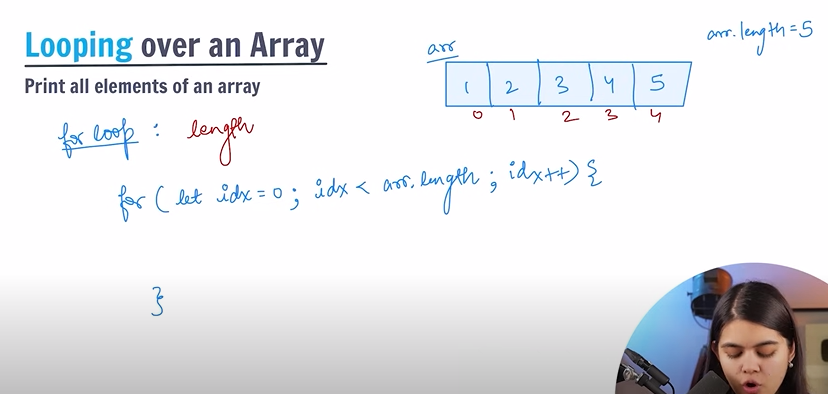 Looping over an Array
Print all elements of an array
arr
arr.length=5
1 2 3 4 5
0 1 2 3 4
for loop : length
for ( let idx = 0 ; idx < arr.length ; idx++) {
}